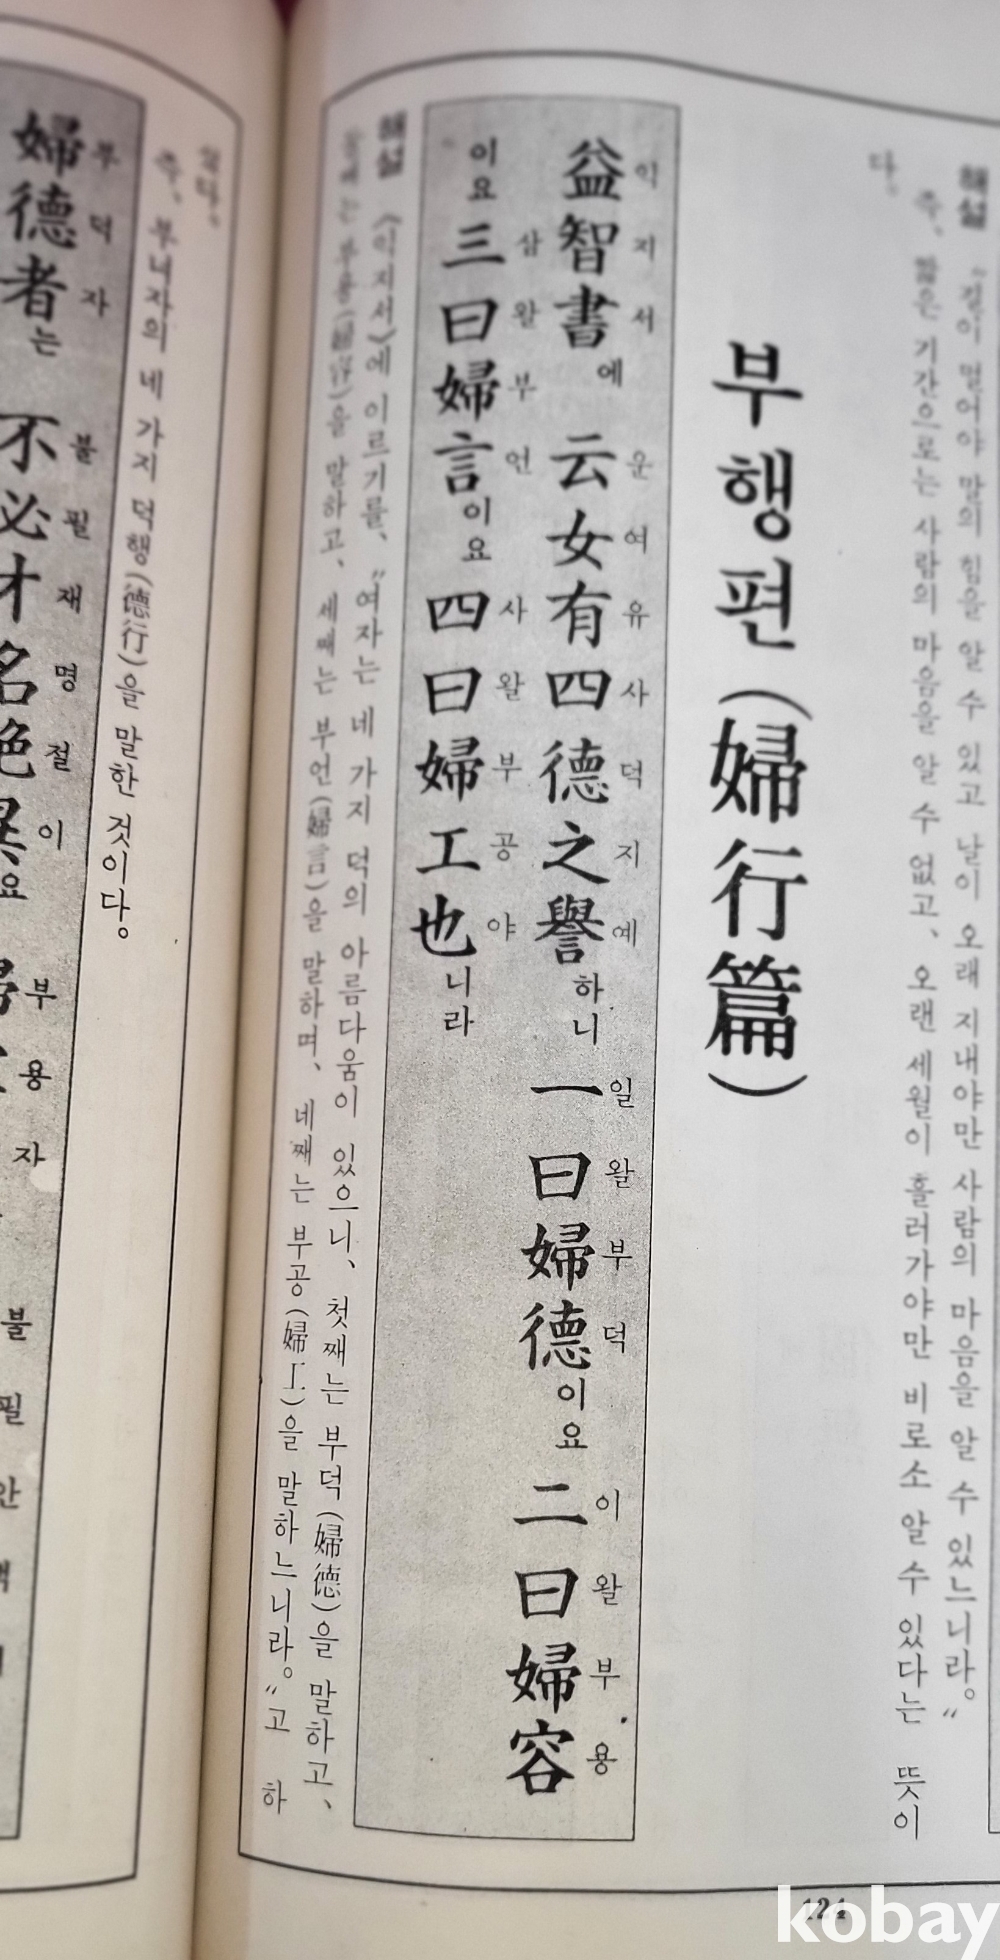 해설 “길이 멀어야 말의 힘을 알 수 있고 날이 오래 지내야만 사람의 마음을 알 수 있느니라.”
즉, 짧은 기간으로는 사람의 마음을 알 수 없고, 오랜 세월이 흘러가야만 비로소 알 수 있다는 뜻이
다.
부행편(婦行篇)
익지서 운여유사덕지예 일왈부덕 이왈부용
益智書에 云女有四德之譽하니 一曰婦德이요 二曰婦容
삼왈부언 사왈부공야
이요 三曰婦言이요 四曰婦工也니라
해설 《익지서》에 이르기를, “여자는 네 가지 덕의 아름다움이 있으니, 첫째는 부덕(婦德)을 말하고,
둘째는 부용(婦容)을 말하고, 세째는 부언(婦言)을 말하며, 네째는 부공(婦工)을 말하느니라.”고 하
였다.
즉, 부녀자의 네 가지 덕행(德行)을 말한 것이다.
부덕자 불필재명절이 부용자 불필안
婦德者는 不必才名絶異요
124
kobay